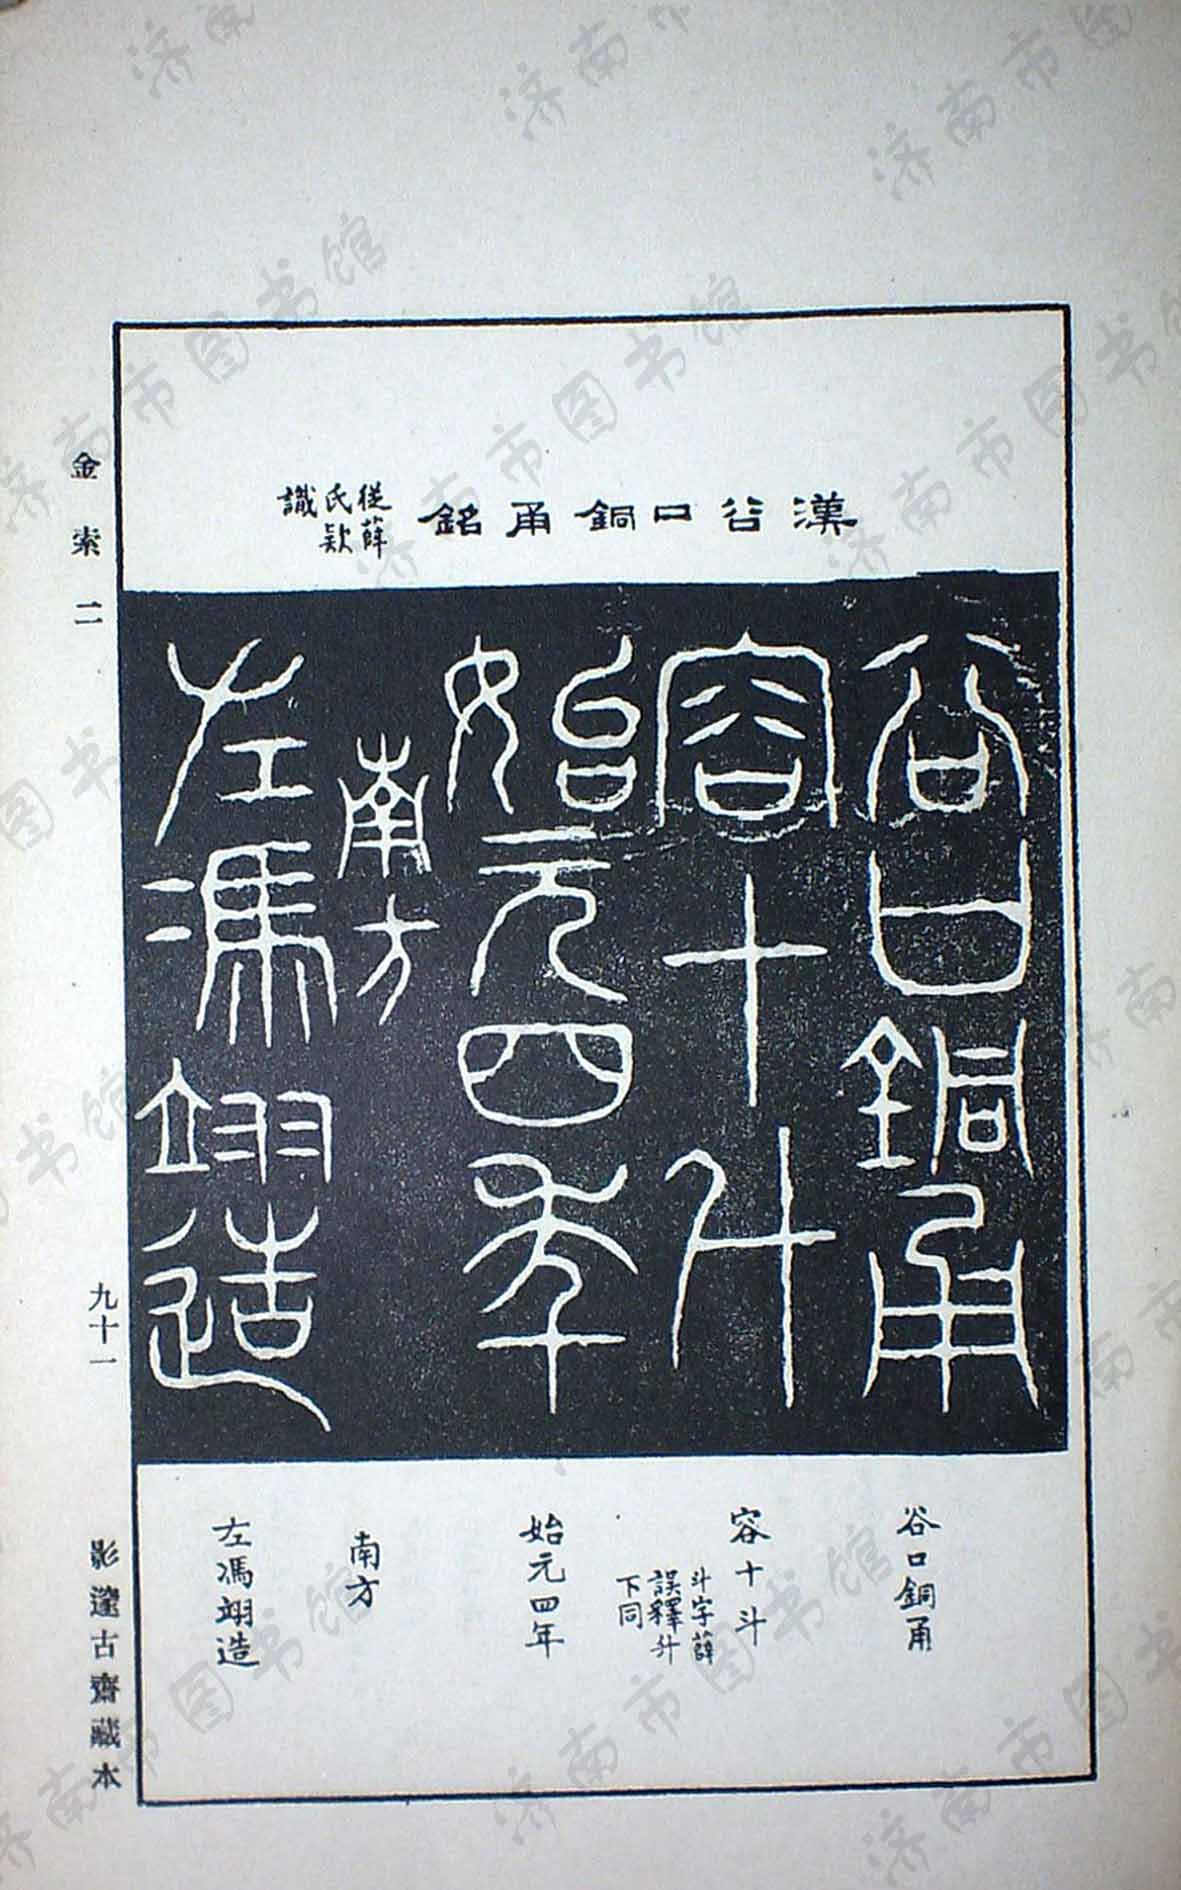 漢谷口銅甬銘
從薛
氏款
識
谷口銅甬
容十斗
始元四年
南方
左馮翊造
谷口銅甬
容十斗
斗字薛
誤釋升
下同
始元四年
南方
左馮翊造
金索二
九十一
影灙古齋藏本
济南市图书馆